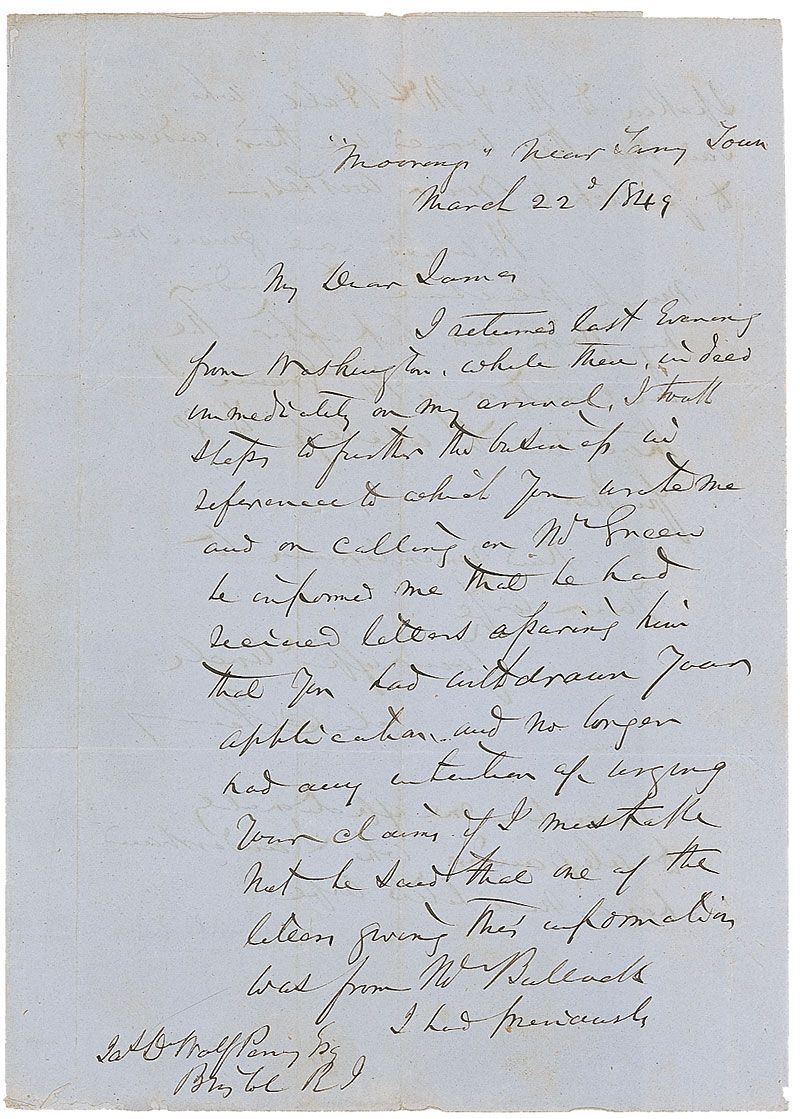 "Moorings" Near Tarry Town
March 22d 1849
My Dear James
I returned last Evening
from Washington. while there, indeed
immediately on my arrival, I took
steps to further the business in
reference to which you wrote me
and on calling on Mr Green
he informed me that he had
received letters assuring him
that you had withdrawn your
application and no longer
had any intention of urging
your claims, if I mistake
not he said that one of the
letters giving this information
was from Mr Bullock
I had previously
Jas D Wolf Perry Esq
Bristol R I